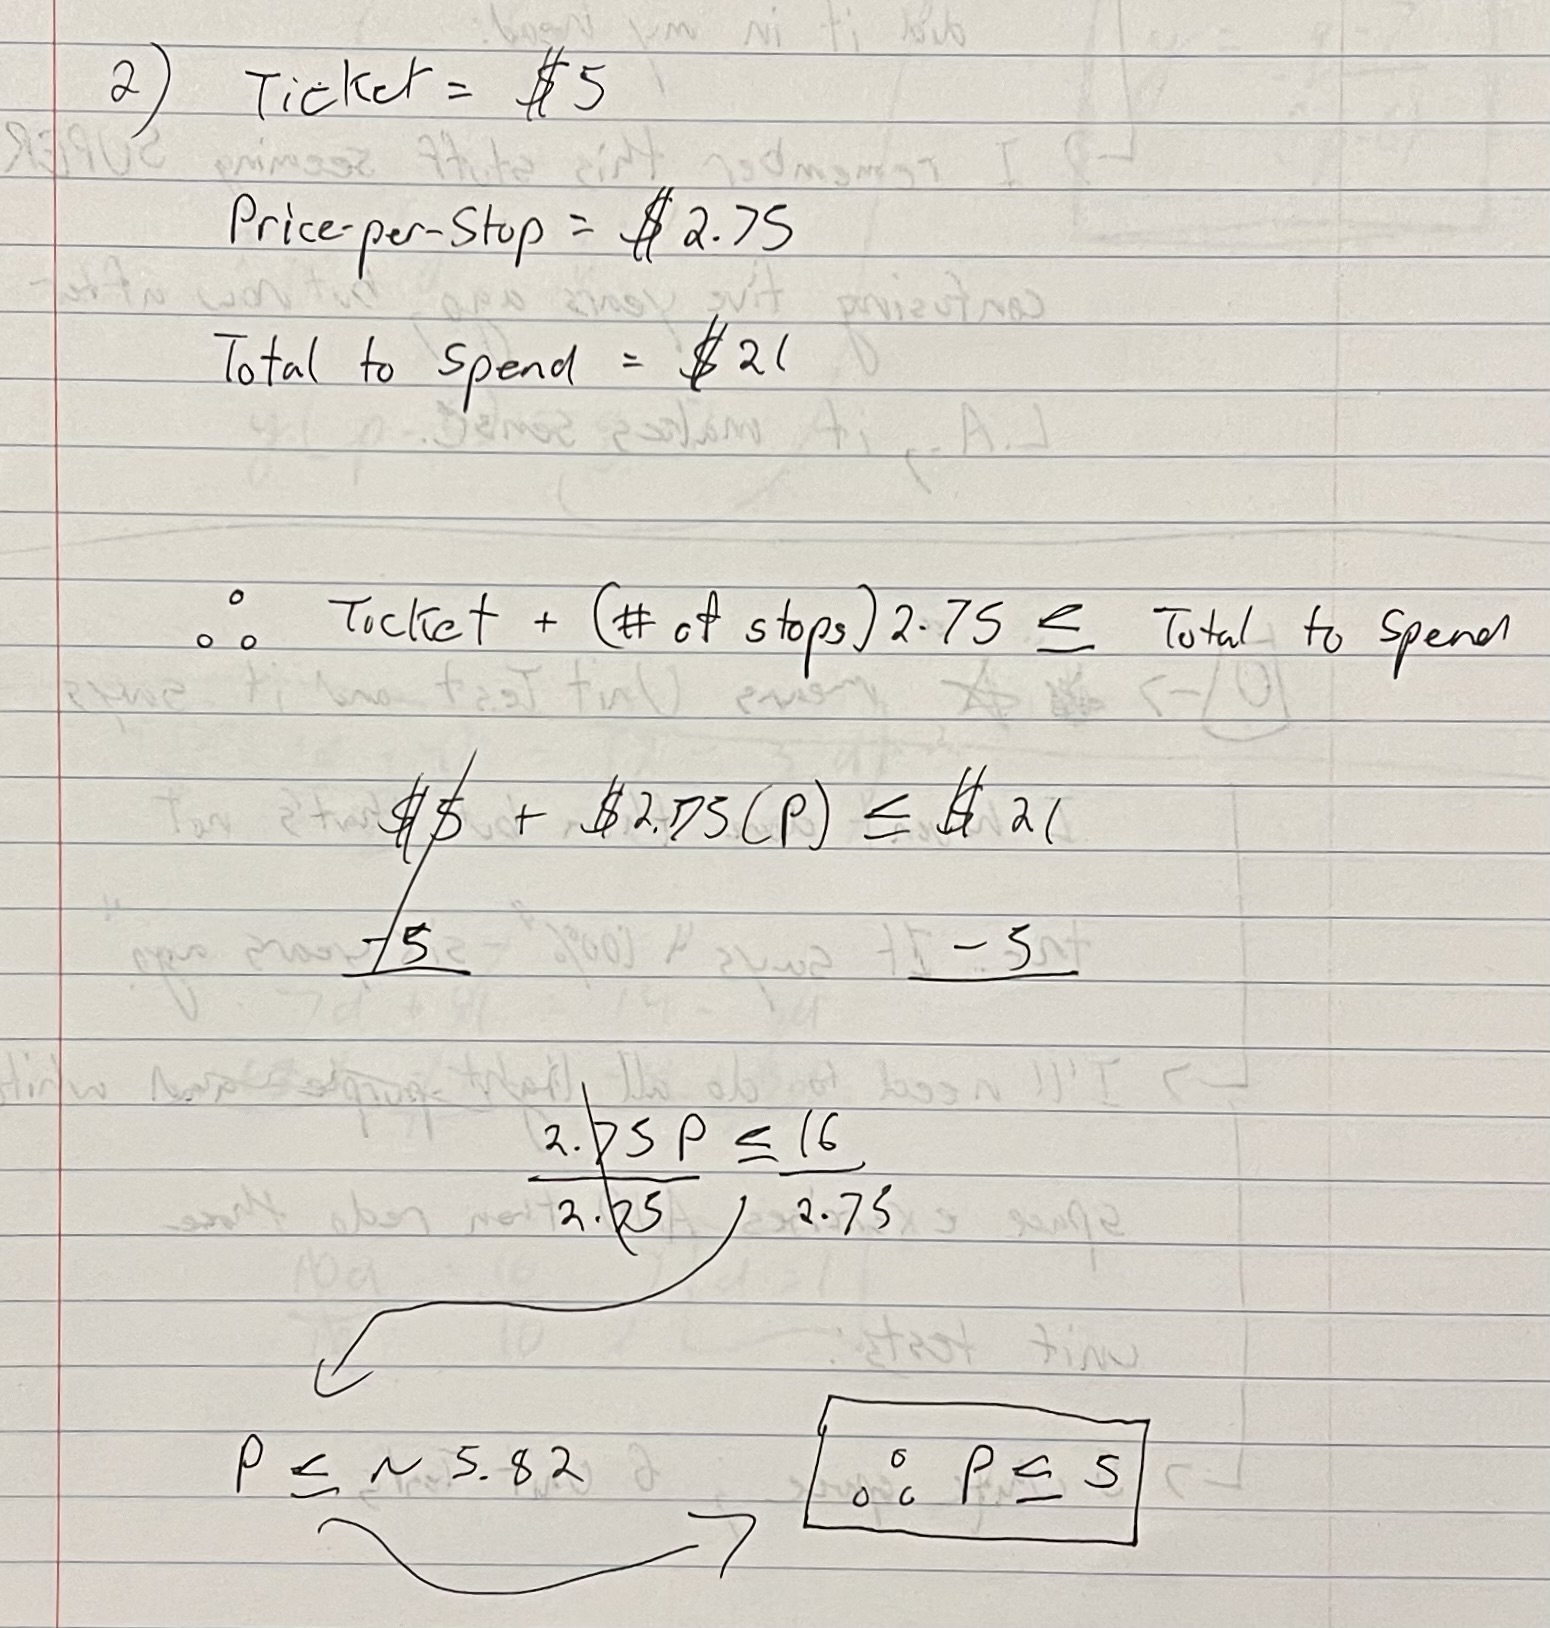 2) Ticket = $5
Price-per-Stop = $2.75
Total to Spend = $21
∴ Ticket + (# of stops) 2.75 ≤ Total to Spend
$5 + $2.75(P) ≤ $21
-5 -5
2.75 P ≤ 16
2.75 2.75
P ≤ ~ 5.82
∴ P ≤ 5